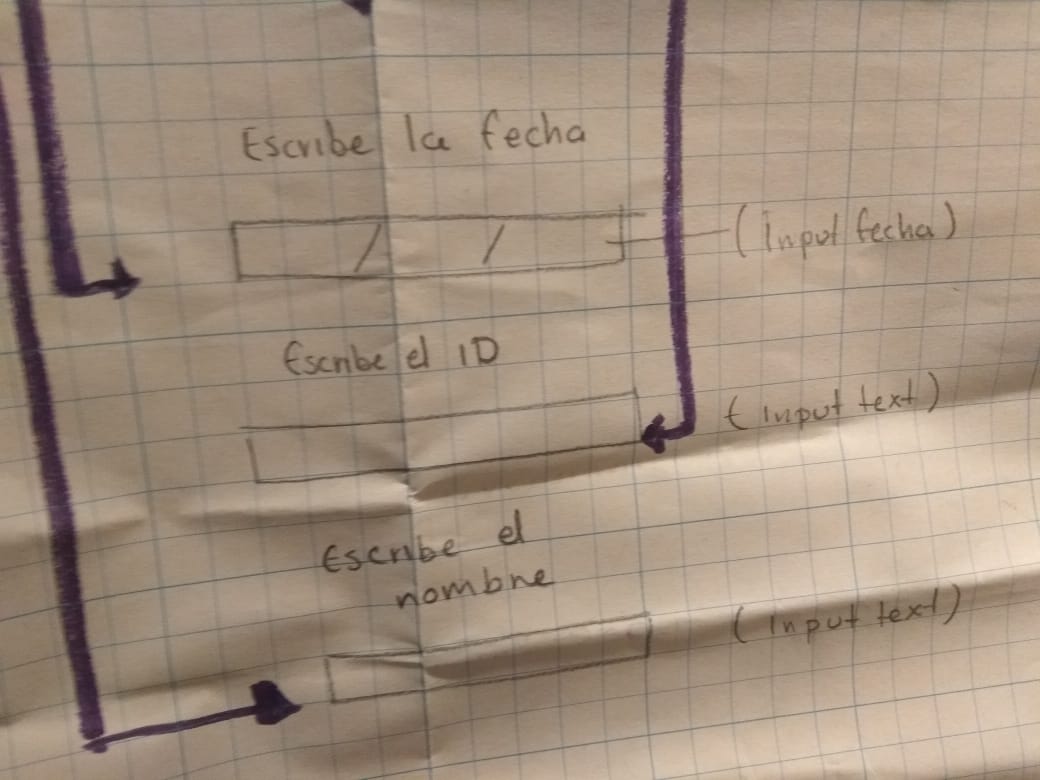 Escribe la fecha
/ /
(Input fecha)
Escribe el ID
(Input text)
Escribe el
nombre
(Input text)